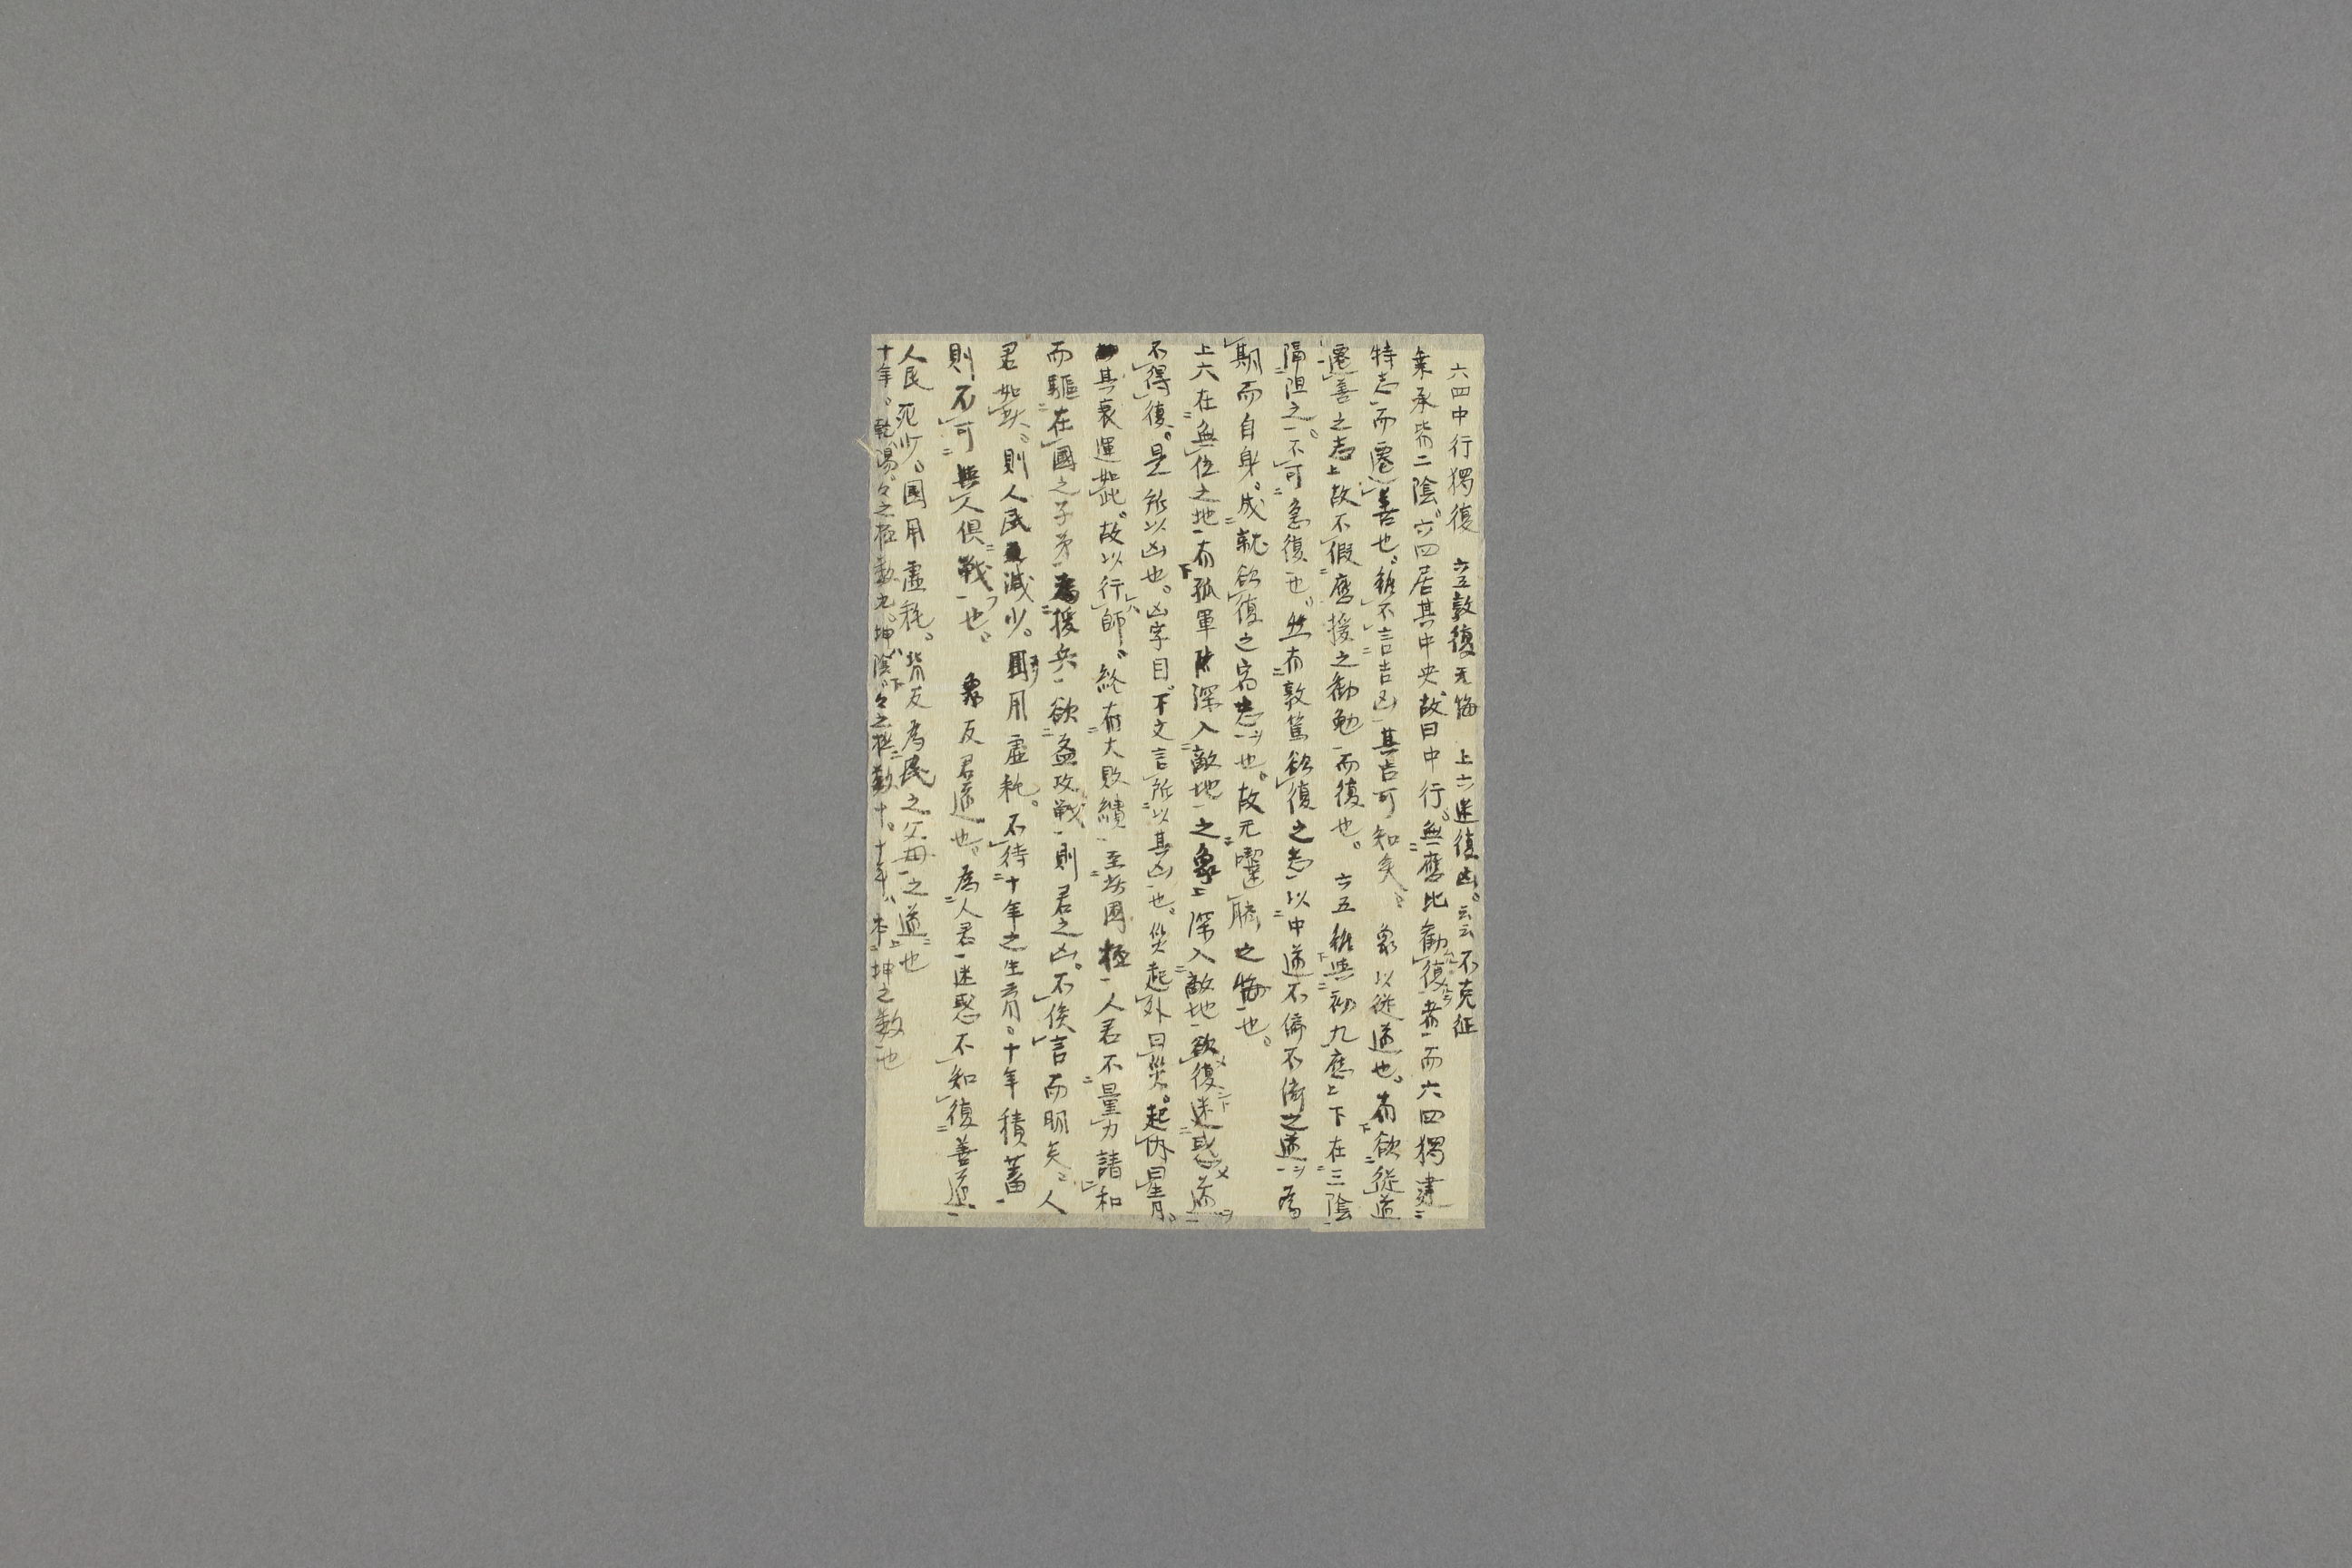 六四中行獨復 六五敦復无悔 上六迷復凶。云云不克征
乗承皆二陰。六四居其中央故曰中行。無應比勸復者而六四獨建
特志而遷善也。雖不言吉凶其吉可知矣。 象以從道也。有欲從道
遷善之志故不假應援之勸勉而復也。 六五雖與初九應上下在三陰
隔阻之。不可急復也。然有敦篤欲復之志以中道不偏不倚之道為
期而自身。成就欲復之宿志也。故无噬臍之悔也。
上六在無位之地有孤軍深入敵地之象深入敵地欲復迷惑道
不得復。是所以凶也。凶字目下文言所以其凶也。災起外曰災。起內曰眚。
其衰運如此。故以行師。終有大敗績至其國極人君不量力請和
而驅在國之子弟為援兵欲盡攻戰則君之凶。不俟言而明矣。人
君如此。則人民減少。國用虛耗。不待十年之生育。十年積蓄
則不可與人俱戰也。 象反君道也。為人君迷惑不知復善道
人民死少。國用虛耗。背反為民之父母之道也
十年。乾陽。々之極數九。坤陰。々之極數十。十年本坤之數也